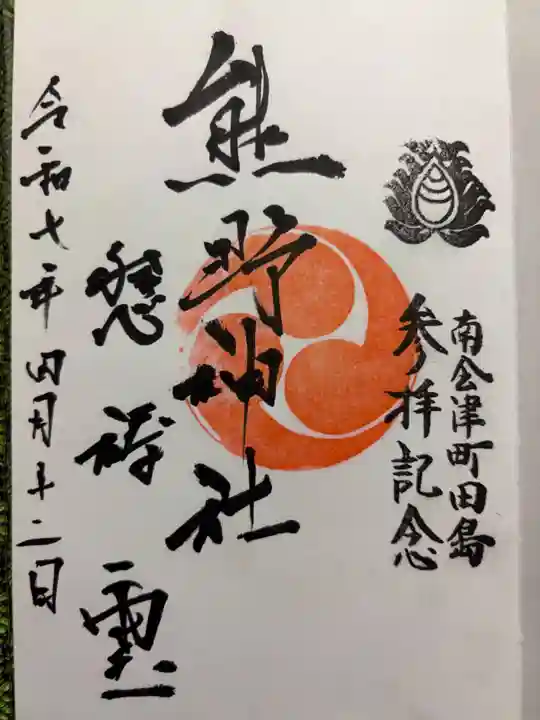 南会津町田島
参拝記念
熊野神社
懇祷霊
令和七年四月十二日